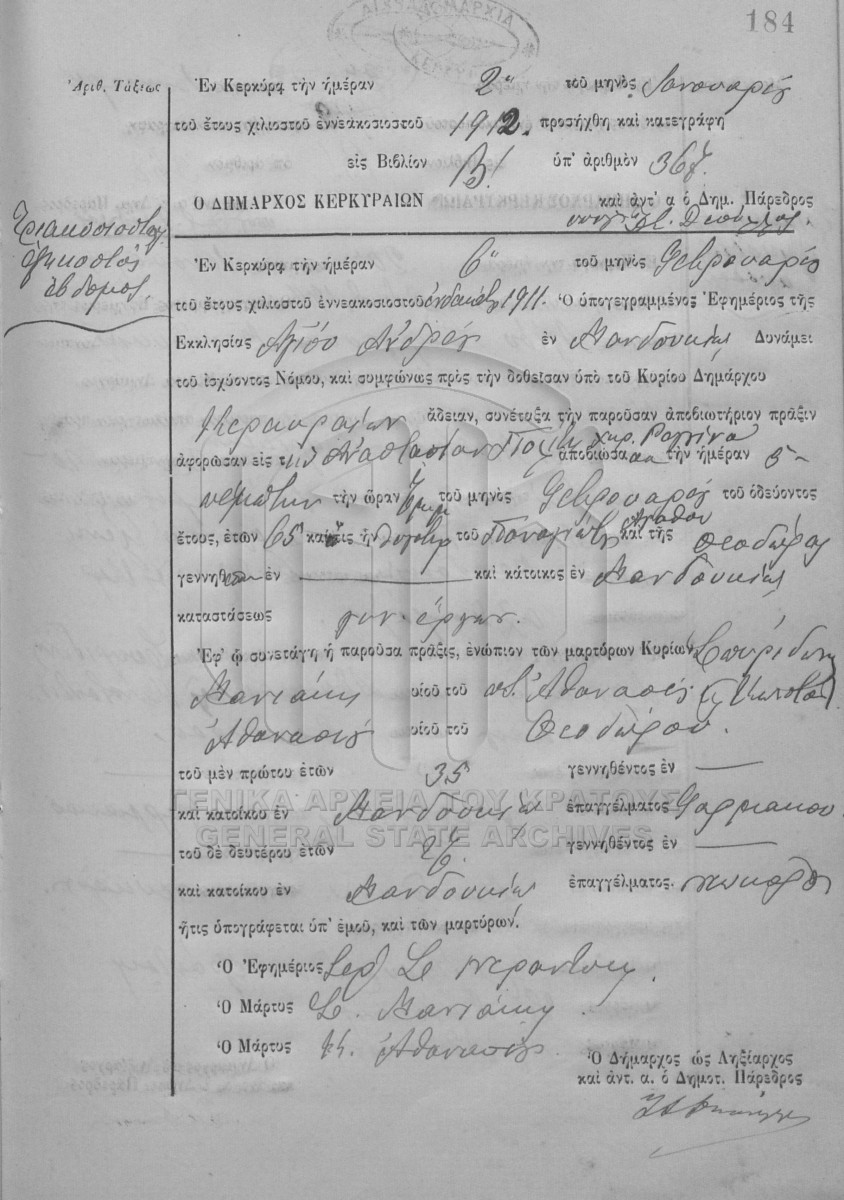 184
Ἀριθ. Τάξεως
Ἐν Κερκύρᾳ τὴν ἡμέραν 2α τοῦ μηνὸς Ἰανουαρίου
τοῦ ἔτους χιλιοστοῦ ἐννεακοσιοστοῦ 1912. προσήχθη καὶ κατεγράφη
εἰς Βιβλίον Β! ὑπ' ἀριθμὸν 367.
Ο ΔΗΜΑΡΧΟΣ ΚΕΡΚΥΡΑΙΩΝ καὶ ἀντ' α ὁ Δημ. Πάρεδρος
Τριακοσιοστὸς
ἑξηκοστὸς
ἕβδομος
Ἐν Κερκύρᾳ τὴν ἡμέραν 6η τοῦ μηνὸς Φεβρουαρίου
τοῦ ἔτους χιλιοστοῦ ἐννεακοσιοστοῦ ἑνδεκάτου 1911. Ὁ ὑπογεγραμμένος Ἐφημέριος τῆς
Ἐκκλησίας Ἁγίου Ἀνδρέου ἐν Μανδουκίῳ Δυνάμει
τοῦ ἰσχύοντος Νόμου, καὶ συμφώνως πρὸς τὴν δοθεῖσαν ὑπὸ τοῦ Κυρίου Δημάρχου
Κερκυραίων ἄδειαν, συνέταξα τὴν παροῦσαν ἀποβιωτήριον πρᾶξιν
ἀφορῶσαν εἰς τὴν Ἀναστασίαν χηρ. ἀποβιώσασαν τὴν ἡμέραν 5
τὴν ὥραν τοῦ μηνὸς Φεβρουαρίου τοῦ ὁδεύοντος
ἔτους, ἐτῶν 65 καὶ τις ἦν θυγάτηρ τοῦ Παναγιώτου καὶ τῆς Θεοδώρας
γεννηθ ἐν καὶ κάτοικος ἐν Μανδουκίῳ
καταστάσεως
Ἐφ' ᾧ συνετάγη ἡ παροῦσα πρᾶξις, ἐνώπιον τῶν μαρτύρων Κυρίων Σπυρίδων
Μανιάκη υἱοῦ τοῦ Ἀθανασίου
Ἀθανασίου υἱοῦ τοῦ Θεοδώρου.
τοῦ μὲν πρώτου ἐτῶν 35 γεννηθέντος ἐν
καὶ κατοίκου ἐν Μανδουκίῳ ἐπαγγέλματος Φαρμακοπ.
ΓΕΝΙΚΑ ΑΡΧΕΙΑ ΤΟΥ ΚΡΑΤΟΥΣ
GENERAL STATE ARCHIVES
τοῦ δὲ δευτέρου ἐτῶν γεννηθέντος ἐν
καὶ κατοίκου ἐν Μανδουκίῳ ἐπαγγέλματος.
ἥτις ὑπογράφεται ὑπ' ἐμοῦ, καὶ τῶν μαρτύρων.
Ὁ Ἐφημέριος
Ὁ Μάρτυς Σ. Μανιάκη
Ὁ Μάρτυς Κ. Ἀθανασίου
Ὁ Δήμαρχος ὡς Ληξίαρχος
καὶ ἀντ. α. ὁ Δημοτ. Πάρεδρος